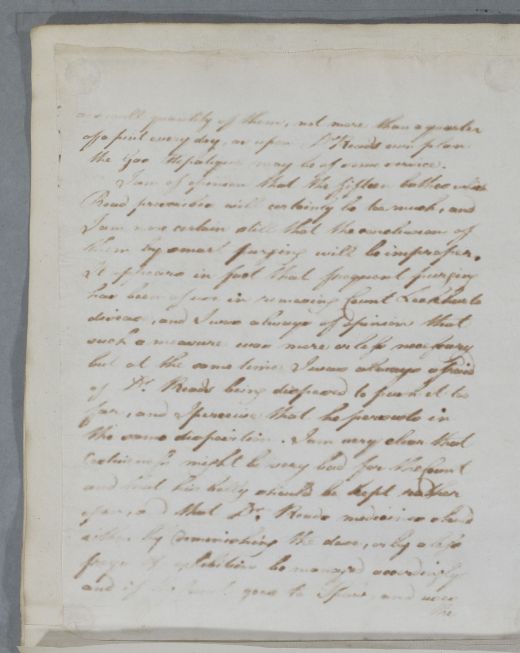 a small quantity of them, not more than a quarter
of a pint every day, or upon Dr. Reads own plan
the may be of some service.
I am of opinion that the fifteen bathes which
Read prescribes will certainly be too much, and
I am more certain still that the conclusion of
them by smart purging will be improper.
It appears in fact that frequent purging
has been of use in removing Count Lockharts
disease, and I was always of opinion that
such a measure was more or less necessary
but at the same time I was always afraid
of Dr. Reads being disposed to push it too
far, and I perceive that he persists in
the same disposition. I am very clear that
Costiveness might be very bad for the Count
and that his belly should be kept rather
open, and that Dr. Reads medicines should
either by diminishing the dose, or by a less
frequent exhibition be managed accordingly
and if the Count goes to Spaw, and uses
the